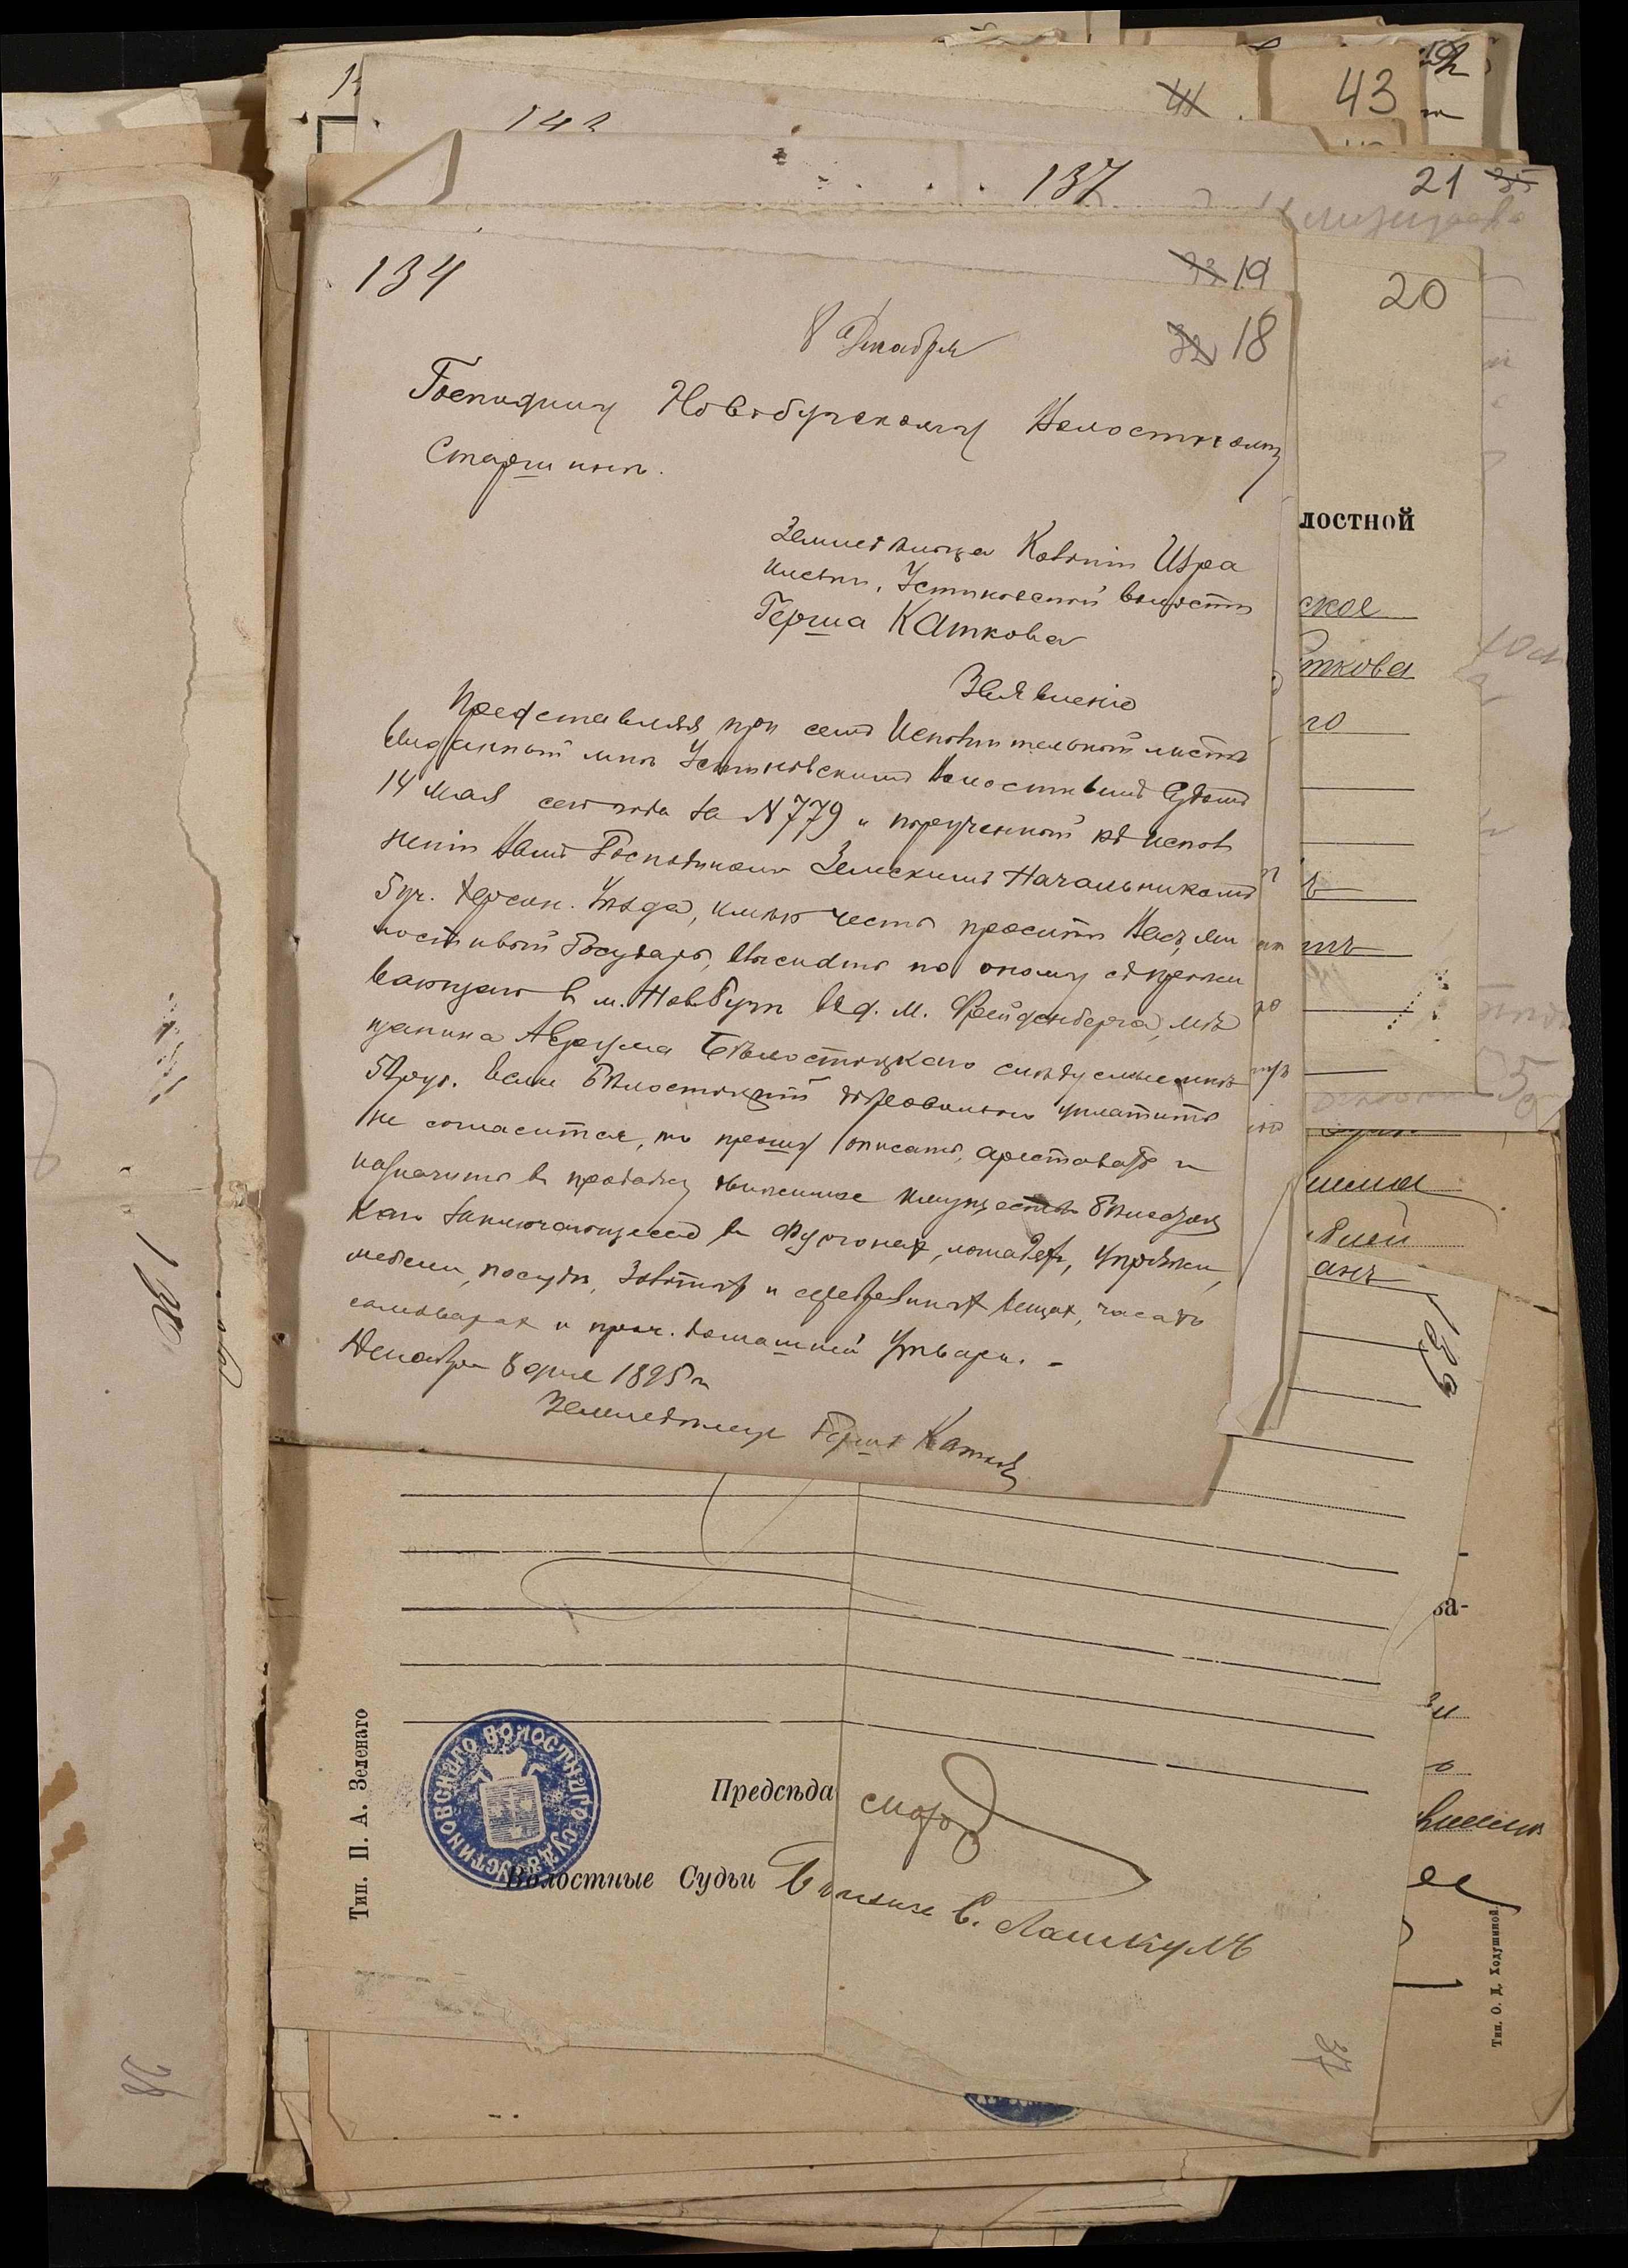 43
137
21
134
19
18
20
8 Декабря
Господину Новобугскому Волостному
Старшинѣ.
Земледѣльца Колоніи Изра
илевки, Устиновской волости
Герша Каткова
Заявленіе
Представляя при семъ Исполнительный листъ
выданный мнѣ Устиновскимъ Волостнымъ Судомъ
14 Мая сего года за № 779 и порученный къ испол
ненію Вамъ Господиномъ Земскимъ Начальникомъ
5 уч. Херсон. Уѣзда, имѣю честь просить Васъ, Ми
лостивый Государь, взыскать по оному съ прожи
вающаго в м. Новый Бугъ в д. М. Фрейденберга, мѣ
щанина Аврума Бѣлостоцкаго слѣдуемые мнѣ
руб. Если Бѣлостоцкій добровольно уплатить
не согласится, то прошу описать, арестовать и
назначить в продажу движимое имущество Бѣлостоц
каго заключающееся в фургонах, лошадях, упряжи,
мебели, посуды, золотых и серебряных вещах, часахъ
самоварах и проч. домашней утвари. -
Декабря 8 дня 1895 г.
Земледѣлецъ Герш Катков
лостной
ское
ткова
го
анъ
139
138
за-
Тип. П. А. Зеленаго
УСТИНОВСКАГО ВОЛОСТНАГО СУДА
Предсѣда
Волостные Судьи
С. Лашкулъ
Тип. О. Д. Ходушиной.